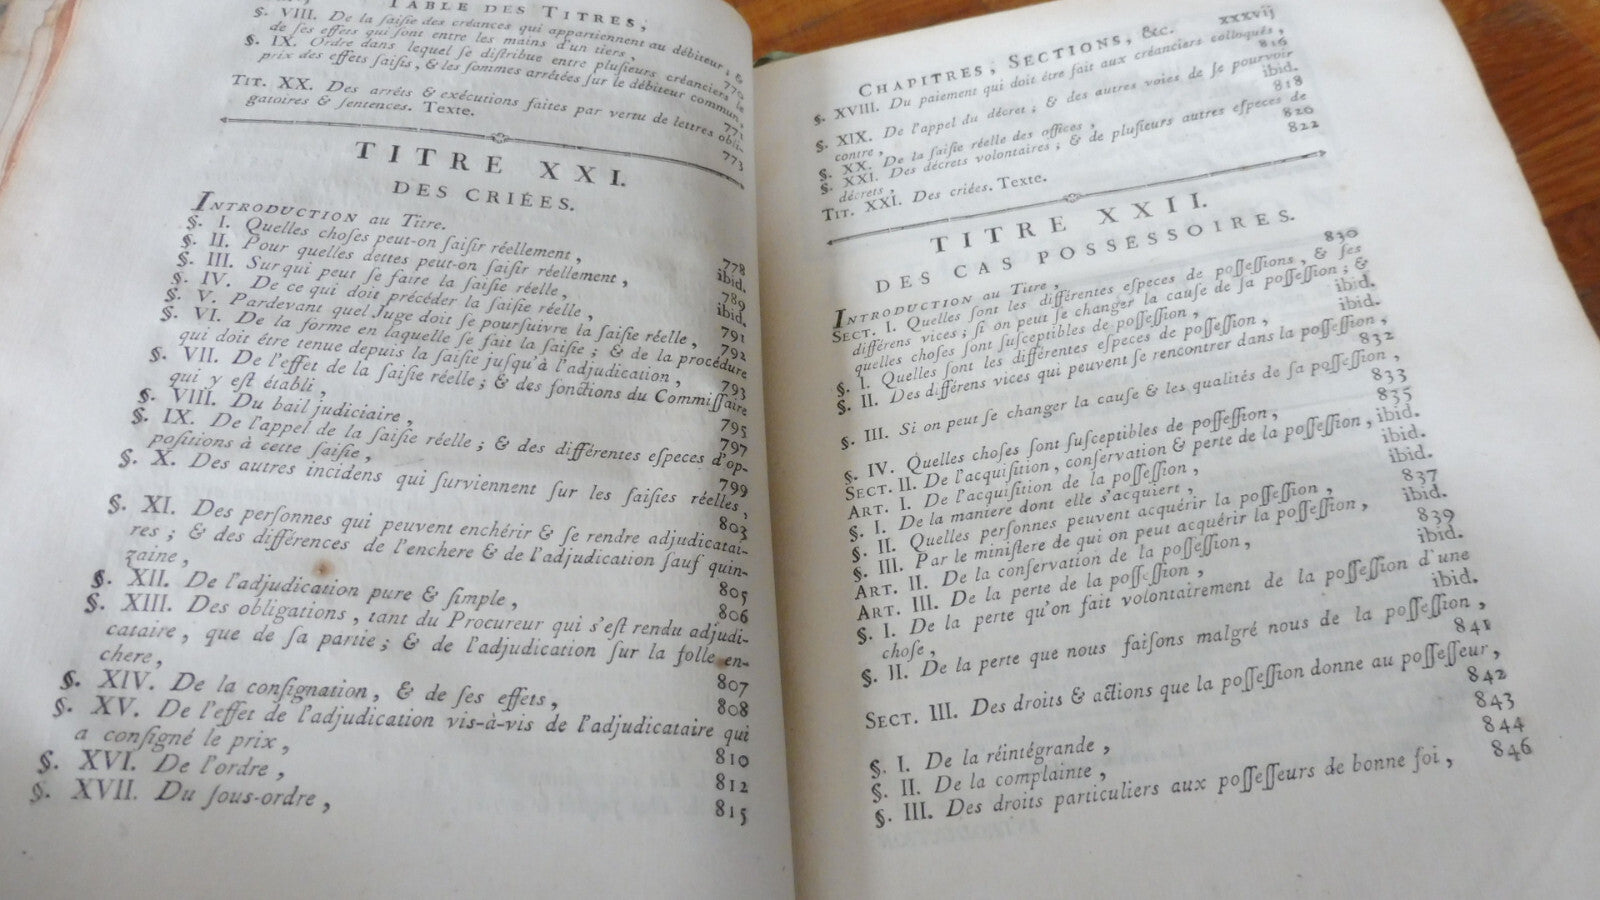 TABLE DES TITRES,
§. VIII. De la ſaiſie des créances qui appartiennent au débiteur ; &
de ſes effets qui ſont entre les mains d'un tiers, 770
§. IX. Ordre dans lequel ſe diſtribue entre pluſieurs créanciers le
prix des effets ſaiſis, & les ſommes arrêtées ſur le débiteur commun,
771
TIT. XX. Des arrêts & exécutions faites par vertu de lettres obli-
gatoires & ſentences. Texte. 773
TITRE XXI.
DES CRIÉES.
INTRODUCTION au Titre. 778
§. I. Quelles choſes peut-on ſaiſir réellement, ibid.
§. II. Pour quelles dettes peut-on ſaiſir réellement, 789
§. III. Sur qui peut ſe faire la ſaiſie réelle, ibid.
§. IV. De ce qui doit précéder la ſaiſie réelle, 791
§. V. Pardevant quel Juge doit ſe pourſuivre la ſaiſie réelle, 792
§. VI. De la forme en laquelle ſe fait la ſaiſie ; & de la procédure
qui doit être tenue depuis la ſaiſie juſqu'à l'adjudication, 793
§. VII. De l'effet de la ſaiſie réelle ; & des fonctions du Commiſſaire
qui y eſt établi, 795
§. VIII. Du bail judiciaire, 797
§. IX. De l'appel de la ſaiſie réelle ; & des différentes eſpeces d'op-
poſitions à cette ſaiſie, 799
§. X. Des autres incidens qui ſurviennent ſur les ſaiſies réelles,
803
§. XI. Des perſonnes qui peuvent enchérir & ſe rendre adjudicatai-
res ; & des différences de l'enchere & de l'adjudication ſauf quin-
zaine, 805
§. XII. De l'adjudication pure & ſimple, 806
§. XIII. Des obligations, tant du Procureur qui s'eſt rendu adjudi-
cataire, que de ſa partie ; & de l'adjudication ſur la folle en-
chere, 807
§. XIV. De la conſignation, & de ſes effets, 808
§. XV. De l'effet de l'adjudication vis-à-vis de l'adjudicataire qui
a conſigné le prix, 810
§. XVI. De l'ordre, 812
§. XVII. Du ſous-ordre, 815
CHAPITRES, SECTIONS, &c. xxxvij
§. XVIII. Du paiement qui doit être fait aux créanciers colloqués,
816
§. XIX. De l'appel du décret ; & des autres voies de ſe pourvoir
contre, ibid.
§. XX. De la ſaiſie réelle des offices, 818
§. XXI. Des décrets volontaires ; & de pluſieurs autres eſpeces de
décrets, 820
TIT. XXI. Des criées. Texte. 822
TITRE XXII.
DES CAS POSSESSOIRES.
INTRODUCTION au Titre, 830
SECT. I. Quelles ſont les différentes eſpeces de poſſeſſions, & ſes
différens vices ; ſi on peut ſe changer la cauſe de ſa poſſeſſion ; &
quelles choſes ſont ſuſceptibles de poſſeſſion, ibid.
§. I. Quelles ſont les différentes eſpeces de poſſeſſion, ibid.
§. II. Des différens vices qui peuvent ſe rencontrer dans la poſſeſſion,
832
§. III. Si on peut ſe changer la cauſe & les qualités de ſa poſſeſſion,
833
§. IV. Quelles choſes ſont ſuſceptibles de poſſeſſion, 835
SECT. II. De l'acquiſition, conſervation & perte de la poſſeſſion, ibid.
ART. I. De l'acquiſition de la poſſeſſion, ibid.
§. I. De la maniere dont elle s'acquiert, ibid.
§. II. Quelles perſonnes peuvent acquérir la poſſeſſion, 837
§. III. Par le miniſtere de qui on peut acquérir la poſſeſſion, ibid.
ART. II. De la conſervation de la poſſeſſion, 839
ART. III. De la perte de la poſſeſſion, ibid.
§. I. De la perte qu'on fait volontairement de la poſſeſſion d'une
choſe, ibid.
§. II. De la perte que nous faiſons malgré nous de la poſſeſſion,
841
SECT. III. Des droits & actions que la poſſeſſion donne au poſſeſſeur,
842
§. I. De la réintégrande, 843
§. II. De la complainte, 844
§. III. Des droits particuliers aux poſſeſſeurs de bonne foi, 846